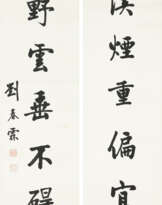 溪煙重偏宜
野雲垂不礙
劉春霖